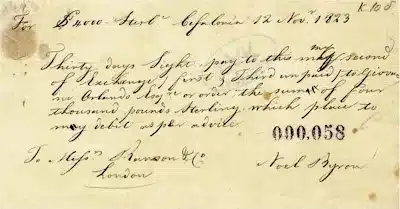 K.105
For £4000 Sterlˢ Cefalonia 12 Novʳ 1823
Thirty days Sight pay to this my second
of Exchange, first & Third unpaid, to Giovan
ni Orlando Esqʳᵉ or order the sum of four
thousand pounds Sterling which place to
my debit as per advice
000,058
To Messʳˢ Ransom & Co
London
Noel Byron